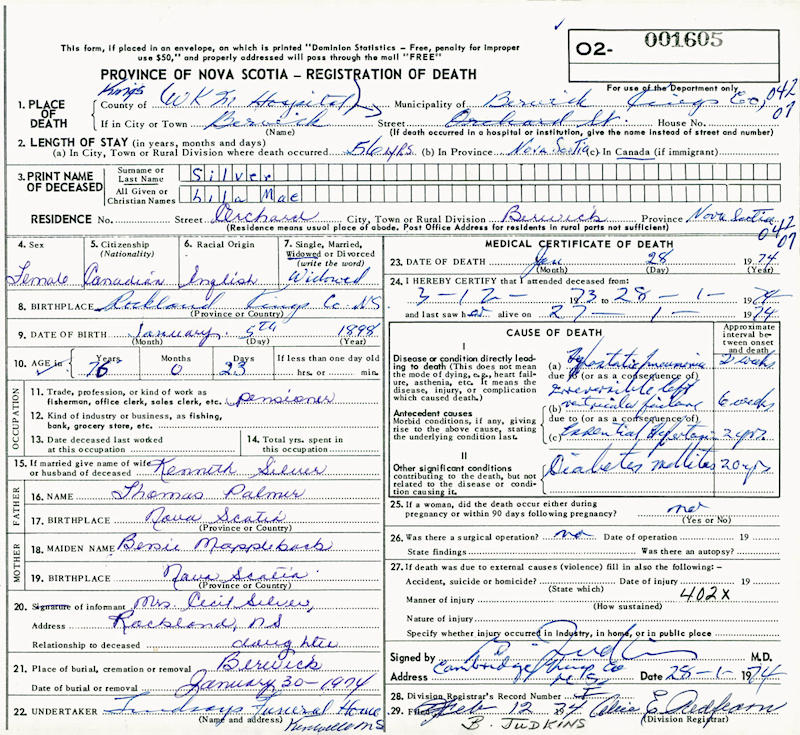 This form, if placed in an envelope, on which is printed "Dominion Statistics – Free, penalty for improper
use $50," and properly addressed will pass through the mail "FREE"
O2- 001605
PROVINCE OF NOVA SCOTIA – REGISTRATION OF DEATH
For use of the Department only
042
07
1. PLACE OF DEATH
Kings
County of (WKM Hospital) Municipality of Berwick Kings Co,
If in City or Town Berwick Street Orchard St. House No.
(Name) (If death occurred in a hospital or institution, give the name instead of street and number)
2. LENGTH OF STAY (in years, months and days)
(a) In City, Town or Rural Division where death occurred 56 yrs (b) In Province Nova Scotia (c) In Canada (if immigrant)
3. PRINT NAME OF DECEASED
Surname or Last Name Silver
All Given or Christian Names Lila Mae
RESIDENCE No. Street Orchard City, Town or Rural Division Berwick Province Nova Scotia
042
07
(Residence means usual place of abode. Post Office Address for residents in rural parts not sufficient)
4. Sex 5. Citizenship (Nationality) 6. Racial Origin 7. Single, Married, Widowed or Divorced (write the word)
Female Canadian English Widowed
8. BIRTHPLACE Rockland Kings Co NS
(Province or Country)
9. DATE OF BIRTH January 5th 1898
(Month) (Day) (Year)
10. AGE in Years Months Days If less than one day old
76 0 23 hrs. or min.
OCCUPATION
11. Trade, profession, or kind of work as fisherman, office clerk, sales clerk, etc. pensioner
12. Kind of industry or business, as fishing, bank, grocery store, etc.
13. Date deceased last worked at this occupation
14. Total yrs. spent in this occupation
15. If married give name of wife or husband of deceased Kenneth Silver
FATHER
16. NAME Thomas Palmer
17. BIRTHPLACE Nova Scotia
(Province or Country)
MOTHER
18. MAIDEN NAME Bessie
19. BIRTHPLACE Nova Scotia
(Province or Country)
20. Signature of informant Mrs Cecil Silver,
Address Rockland, NS
Relationship to deceased daughter
21. Place of burial, cremation or removal Berwick
Date of burial or removal January 30-1974
22. UNDERTAKER Lindsays Funeral Home
(Name and address) Kentville NS
MEDICAL CERTIFICATE OF DEATH
23. DATE OF DEATH Jan 28 1974
(Month) (Day) (Year)
24. I HEREBY CERTIFY that I attended deceased from:
3-12- 1973 to 28-1- 1974
and last saw her alive on 27-1- 1974
CAUSE OF DEATH
Approximate interval between onset and death
I
Disease or condition directly leading to death (This does not mean the mode of dying, e.g., heart failure, asthenia, etc. It means the disease, injury, or complication which caused death.)
(a) Hypostatic pneumonia 2 weeks
due to (or as a consequence of)
Irreversible left
(b) ventricular failure 6 weeks
Antecedent causes
Morbid conditions, if any, giving rise to the above cause, stating the underlying condition last.
due to (or as a consequence of)
(c) Essential Hypertension 2 yrs.
II
Other significant conditions contributing to the death, but not related to the disease or condition causing it.
Diabetes mellitus 20 yrs
25. If a woman, did the death occur either during
pregnancy or within 90 days following pregnancy? no
(Yes or No)
26. Was there a surgical operation? no Date of operation 19
State findings Was there an autopsy?
27. If death was due to external causes (violence) fill in also the following:–
Accident, suicide or homicide? Date of injury 19
(State which)
Manner of injury 402X
(How sustained)
Nature of injury
Specify whether injury occurred in industry, in home, or in public place
Signed by B. Judkins M.D.
Address Cambridge Kings Co N.S. Date 28-1-1974
28. Division Registrar's Record Number
29. Filed Feb 12 1974
(Division Registrar)
B. JUDKINS